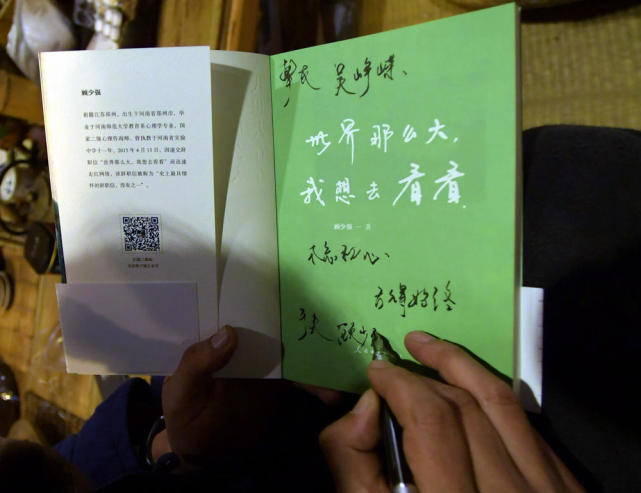 顾少强
祖籍江苏徐州，出生于河南省郑州市，毕
业于河南师范大学教育系心理学专业，国
家二级心理咨询师，曾执教于河南省实验
中学十一年。2015年4月13日，因递交辞
职信“世界那么大，我想去看看”而迅速
走红网络，该辞职信被称为“史上最具情
怀的辞职信，没有之一”。
吴峥嵘、
世界那么大，
我想去看看
顾少强 一 著
不忘初心、
方得始终